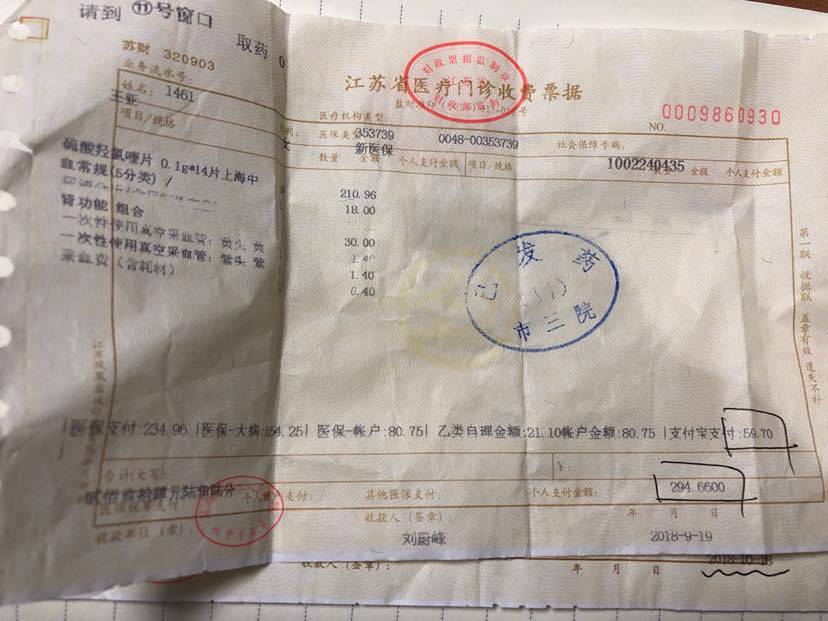 请到 ⑪号窗口 取药 0
苏财 320903
财政票据监制章
江苏省医疗门诊收费票据
业务流水号:
NO. 0009860930
姓名: 1461
王亚
医疗机构类型
医保类型 353739 0048-00353739 社会保障号码:
女 新医保 1002240435
项目/规格 数量 金额 个人支付金额 项目/规格 金额 个人支付金额
硫酸羟氯喹片 0.1g*14片上海中 210.96
血常规(5分类) / 18.00
肾功能 组合 30.00
一次性使用真空采血管: 黄头 黄 1.40
一次性使用真空采血管: 紫头 紫 1.40
采血费(含耗材) 6.40
发药
市三院
第一联 收据联 盖章有效 遗失不补
医保支付:234.96 |医保-大病:154.25| 医保-帐户:80.75| 乙类自理金额:21.10帐户金额:80.75 |支付宝支付:59.70
合计(大写): ¥:
贰佰玖拾肆元陆角陆分
个人账户支付: 其他医保支付: 个人支付金额: 294.6600
收款单位(章): 收款人(签章): 年 月 日
刘蔚峰 2018-9-19
2018-10-18
收款人(签章): 年 月 日